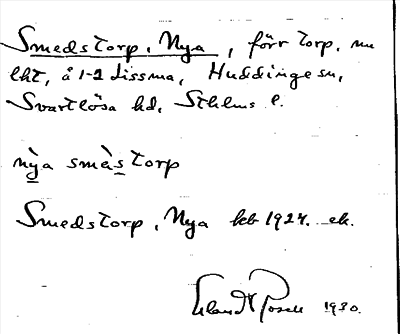 Smedstorp, Nya, förr torp, nu
lht, å 1-2 Lissma, Huddinge sn,
Svartlösa hd, Sthlms l.
nỳa smès torp
Smedstorp, Nya kb 1927. ek.
Erland Rosell 1930.